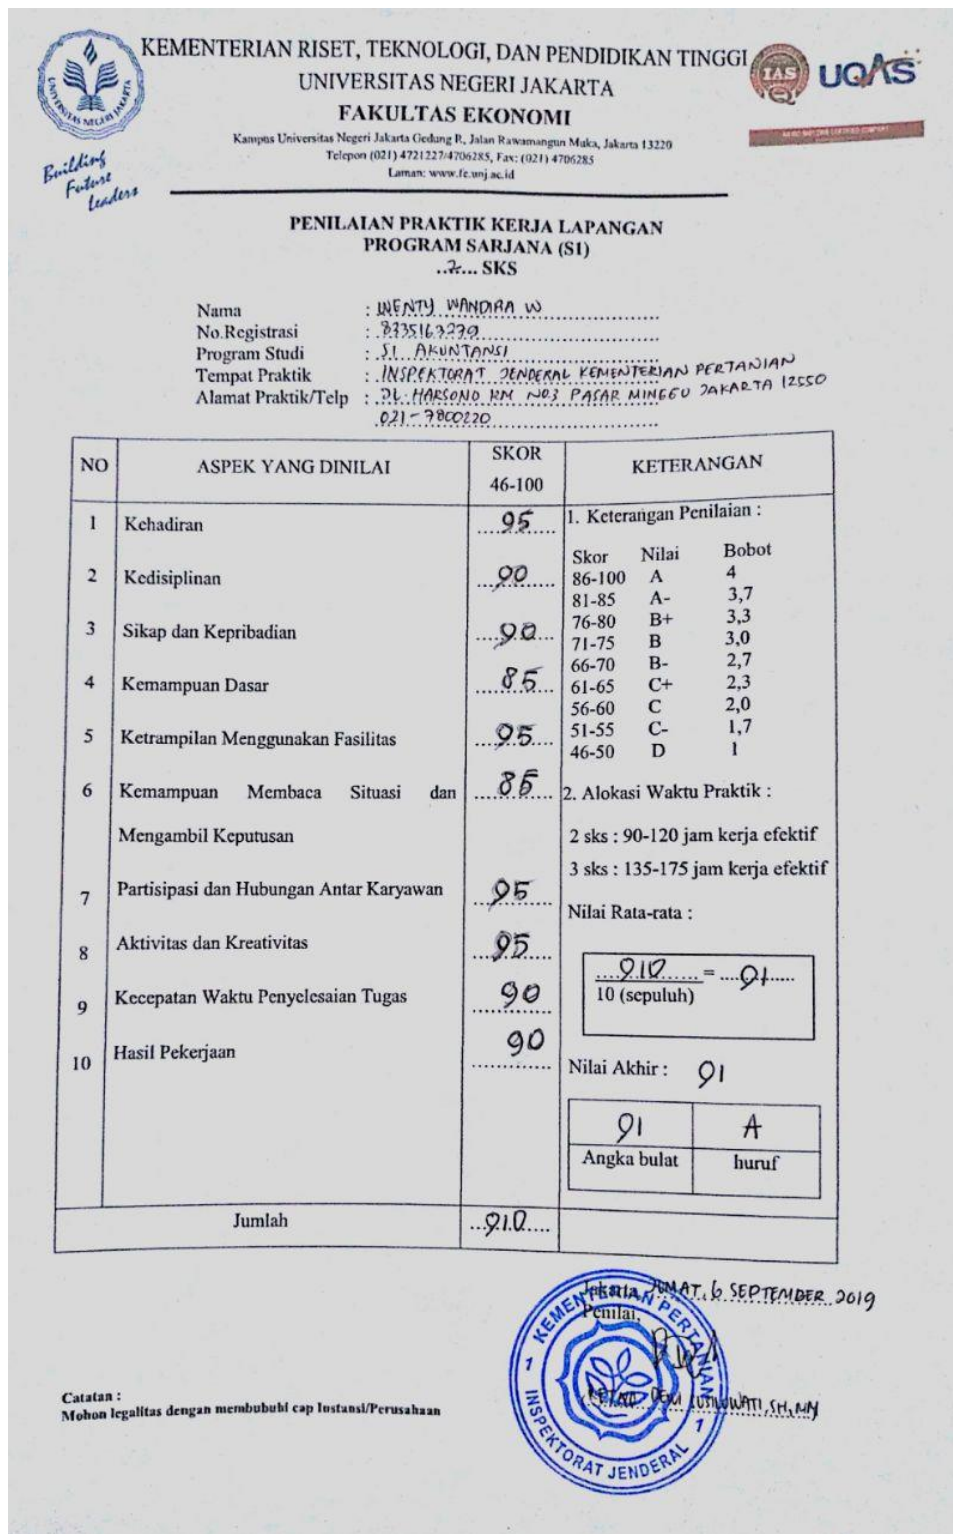 KEMENTERIAN RISET, TEKNOLOGI, DAN PENDIDIKAN TINGGI
UNIVERSITAS NEGERI JAKARTA
FAKULTAS EKONOMI
Kampus Universitas Negeri Jakarta Gedung R, Jalan Rawamangun Muka, Jakarta 13220
Telepon (021) 4721227/4706285, Fax: (021) 4706285
Laman: www.fe.unj.ac.id
UNIVERSITAS NEGERI JAKARTA
Building
Future
Leaders
IAS
UQAS
PENILAIAN PRAKTIK KERJA LAPANGAN
PROGRAM SARJANA (S1)
..2... SKS
Nama : WENTY WANDIRA W
No.Registrasi : 8335163279
Program Studi : S1 AKUNTANSI
Tempat Praktik : INSPEKTORAT JENDERAL KEMENTERIAN PERTANIAN
Alamat Praktik/Telp : JL. HARSONO RM NO.3 PASAR MINGGU JAKARTA 12550
021-7800220
NO ASPEK YANG DINILAI SKOR 46-100 KETERANGAN
1 Kehadiran 95
2 Kedisiplinan 90
3 Sikap dan Kepribadian 90
4 Kemampuan Dasar 85
5 Ketrampilan Menggunakan Fasilitas 95
6 Kemampuan Membaca Situasi dan 85
Mengambil Keputusan
7 Partisipasi dan Hubungan Antar Karyawan 95
8 Aktivitas dan Kreativitas 95
9 Kecepatan Waktu Penyelesaian Tugas 90
10 Hasil Pekerjaan 90
1. Keterangan Penilaian :
Skor Nilai Bobot
86-100 A 4
81-85 A- 3,7
76-80 B+ 3,3
71-75 B 3,0
66-70 B- 2,7
61-65 C+ 2,3
56-60 C 2,0
51-55 C- 1,7
46-50 D 1
2. Alokasi Waktu Praktik :
2 sks : 90-120 jam kerja efektif
3 sks : 135-175 jam kerja efektif
Nilai Rata-rata :
910 = 91
10 (sepuluh)
Nilai Akhir : 91
91 A
Angka bulat huruf
Jumlah 910
Jakarta, JUMAT, 6 SEPTEMBER 2019
Penilai,
RETNO DEWI SUSILOWATI, SH, MM
KEMENTERIAN PERTANIAN
1 INSPEKTORAT JENDERAL 1
Catatan :
Mohon legalitas dengan membubuhi cap Instansi/Perusahaan